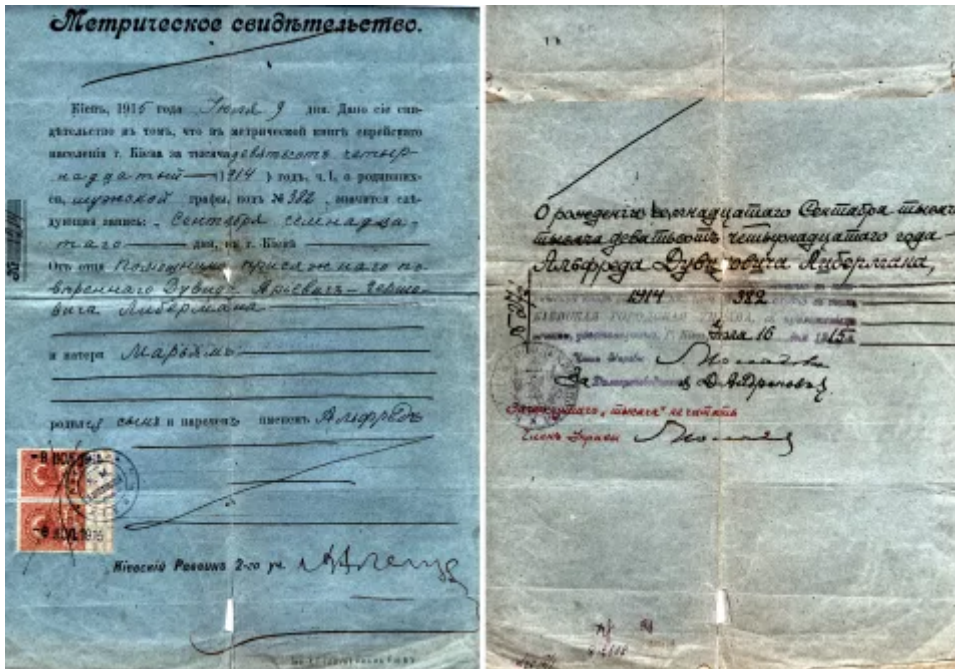 Метрическое свидѣтельство.
Кіевъ, 1915 года Іюля 9 дня. Дано сіе сви-
дѣтельство въ томъ, что въ метрической книгѣ еврейскаго
населенія г. Кіева за тысяча девятьсотъ четыр-
надцатый (1914) годъ, ч. I, о родивших-
ся, мужской графы, подъ № 382, значится слѣ-
дующая запись: „Сентября семнадца-
таго дня, въ г. Кіевѣ
Отъ отца Помощника присяжнаго по-
вѣреннаго Дувида Аріевича-Гершо-
вича Либермана
и матери Марьямъ
родился сынъ и нареченъ именемъ Альфредъ
Кіевскій Раввинъ 2-го уч.
О рожденіи семнадцатаго Сентября тысяча
тысяча девятьсотъ четырнадцатаго года
Альфреда Дувидовича Либермана,
1914 382
КІЕВСКАЯ ГОРОДСКАЯ УПРАВА,
Г. Кіевъ Іюля 16 дня 1915 г.
Членъ Управы
За
Зачеркнутаго „тысяча" не читать
Членъ Управы